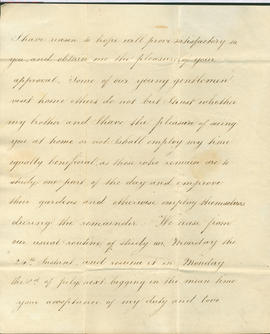 I have reason to hope will prove satisfactory to
you and obtain me the pleasure of your
approval. Some of our young gentlemen
visit home others do not but I trust whether
my brother and I have the pleasure of seeing
you at home or not shall employ my time
equally beneficial as those who remain are to
study one part of the day and improve
their gardens and otherwise employ themselves
during the remainder. We cease from
our usual routine of study on Monday the
24th Instant, and resume it on Monday
the 2d of July next begging in the mean time
your acceptance of my duty and love